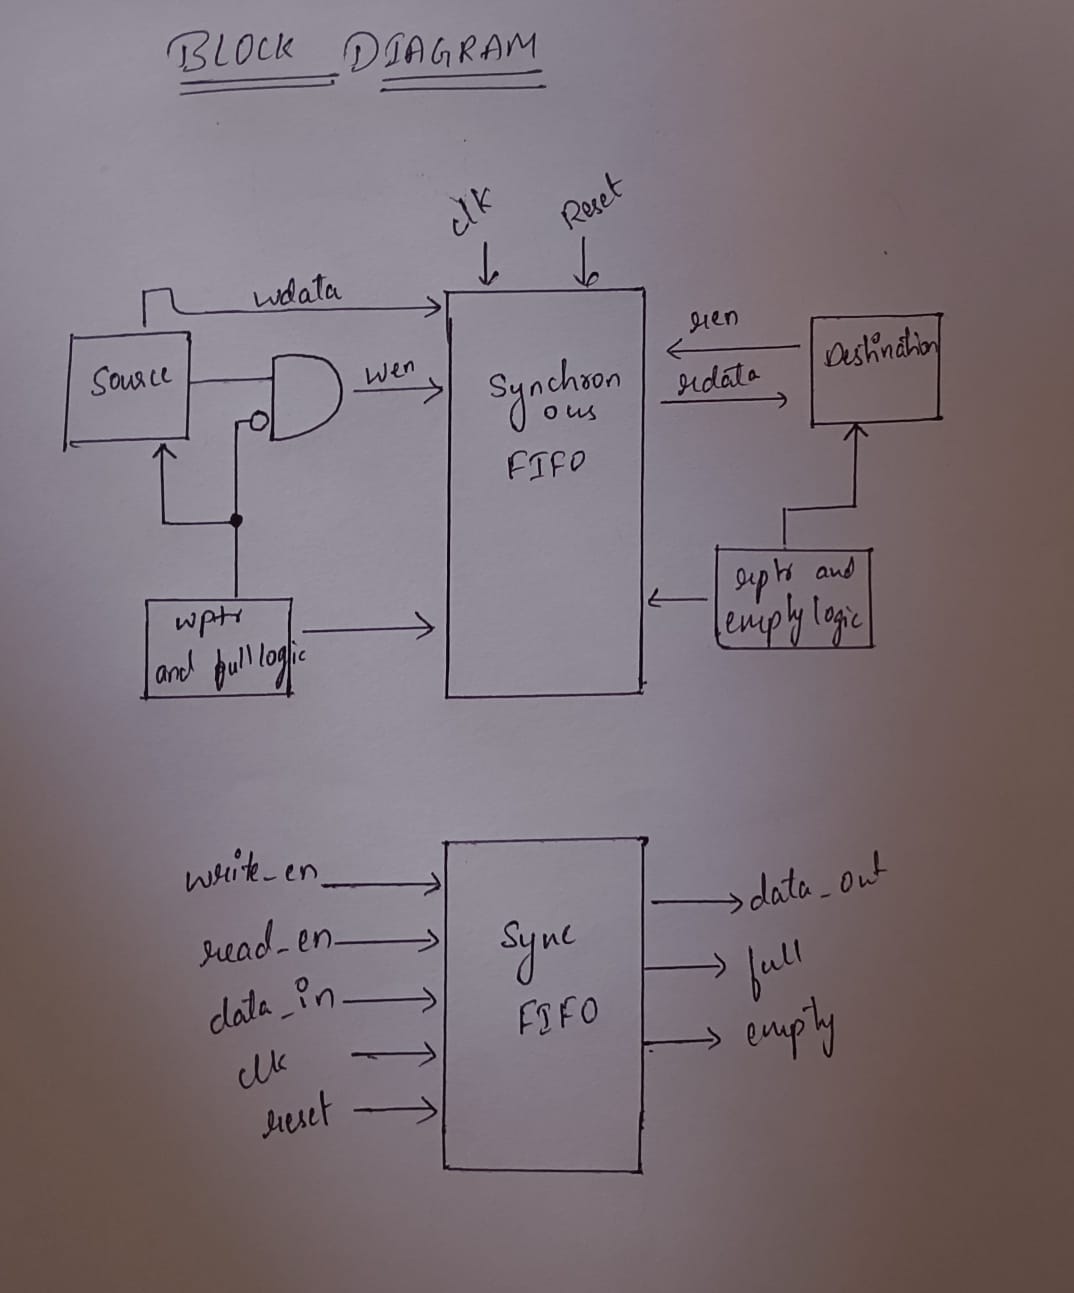 BLOCK DIAGRAM
clk
Reset
wdata
Source
wen
Synchron
ous
FIFO
ren
rdata
Destination
wptr
and full logic
rptr and
empty logic
write_en
read_en
data_in
clk
reset
Sync
FIFO
data_out
full
empty